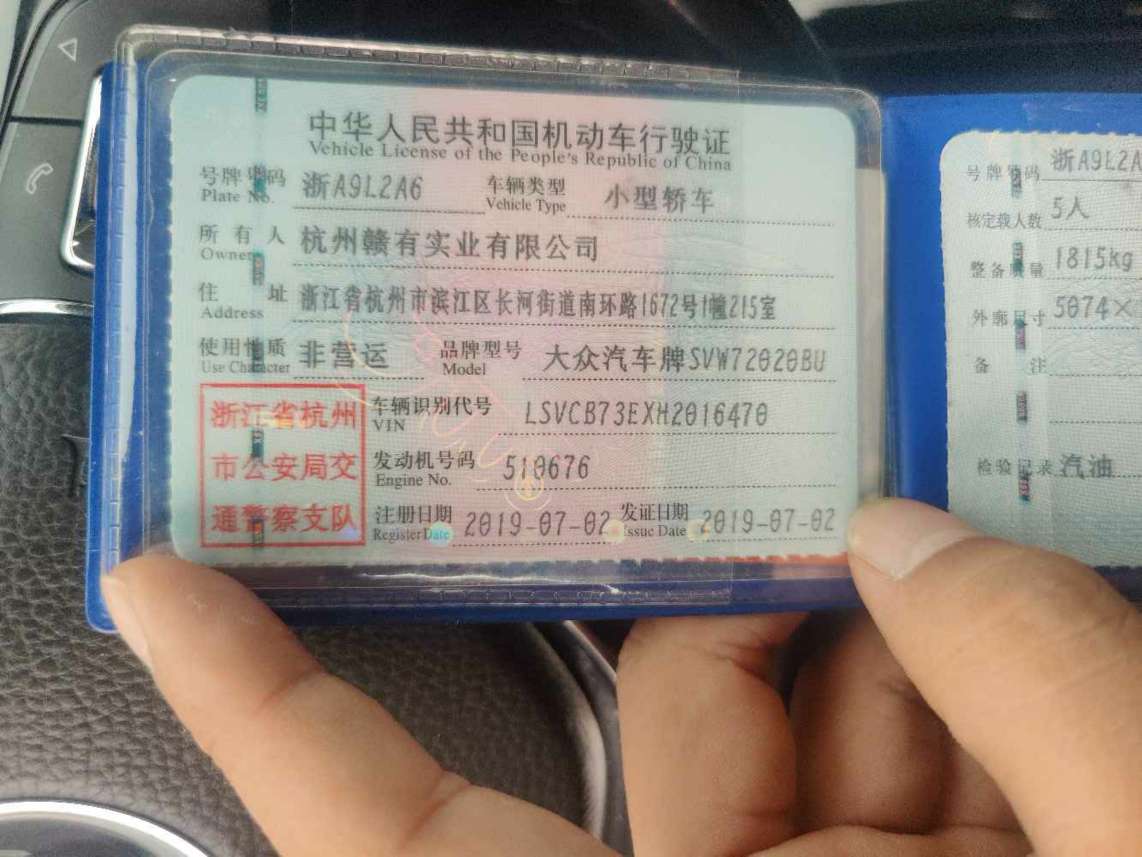 中华人民共和国机动车行驶证
Vehicle License of the People's Republic of China
号牌号码 浙A9L2A6 车辆类型 小型轿车
Plate No. Vehicle Type
所有人 杭州赣有实业有限公司
Owner
住址 浙江省杭州市滨江区长河街道南环路1672号1幢215室
Address
使用性质 非营运 品牌型号 大众汽车牌SVW72020BU
Use Character Model
浙江省杭州
市公安局交
通警察支队
车辆识别代号 LSVCB73EXH2016470
VIN
发动机号码 510676
Engine No.
注册日期 2019-07-02 发证日期 2019-07-02
Register Date Issue Date
号牌号码 浙A9L2A
核定载人数 5人
整备质量 1815kg
外廓尺寸 5074×
备注
检验记录 汽油